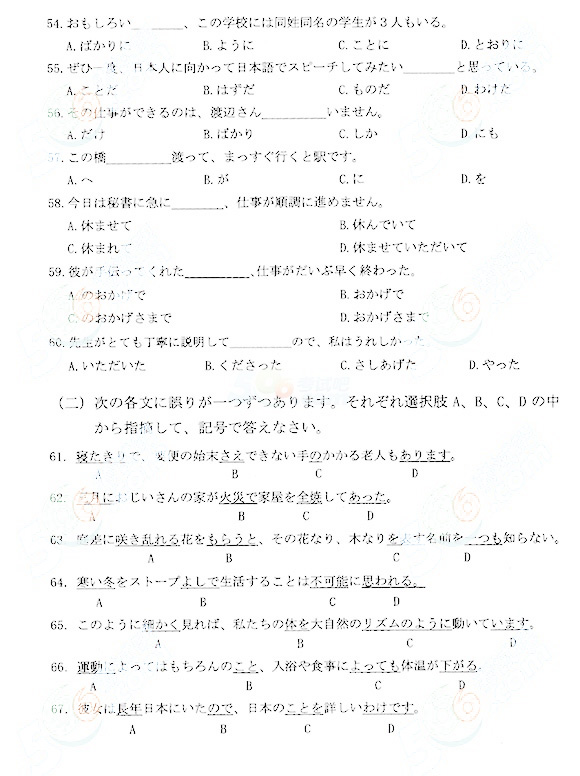 54. おもしろい________、この学校には同姓同名の学生が3人もいる。
A. ばかりに B. ように C. ことに D. とおりに
55. ぜひ一度、日本人に向かって日本語でスピーチしてみたい________と思っている。
A. ことだ B. はずだ C. ものだ D. わけた
56. その仕事ができるのは、渡辺さん__________いません。
A. だけ B. ばかり C. しか D. にも
57. この橋__________渡って、まっすぐ行くと駅です。
A. へ B. が C. に D. を
58. 今日は秘書に急に________、仕事が順調に進めません。
A. 休ませて B. 休んでいて
C. 休まれて D. 休ませていただいて
59. 彼が手伝ってくれた__________、仕事がだいぶ早く終わった。
A. のおかげで B. おかげで
C. のおかげさまで D. おかげさまで
60. 先生がとても丁寧に説明して__________ので、私はうれしかった
A. いただいた B. くださった C. さしあげた D. やった
(二) 次の各文に誤りが一つずつあります。それぞれ選択肢 A、B、C、D の中
から指摘して、記号で答えなさい。
61. 寝たきりで、 便の始末さえできない手のかかる老人もあります。
A B C D
62. 三月におじいさんの家が火災で家屋を全焼してあった。
A B C D
63. に咲き乱れる花をもらうと、その花なり、木なりを 名前を一つも知らない。
A B C D
64. 寒い冬をストーブよしで生活することは不可能に思われる。
A B C D
65. このように細かく見れば、私たちの体を大自然のリズムのように動いています。
A B C D
66. 運動によってはもちろんのこと、入浴や食事によっても体温が下がる。
A B C D
67. 彼女は長年日本にいたので、日本のことを詳しいわけです。
A B C D